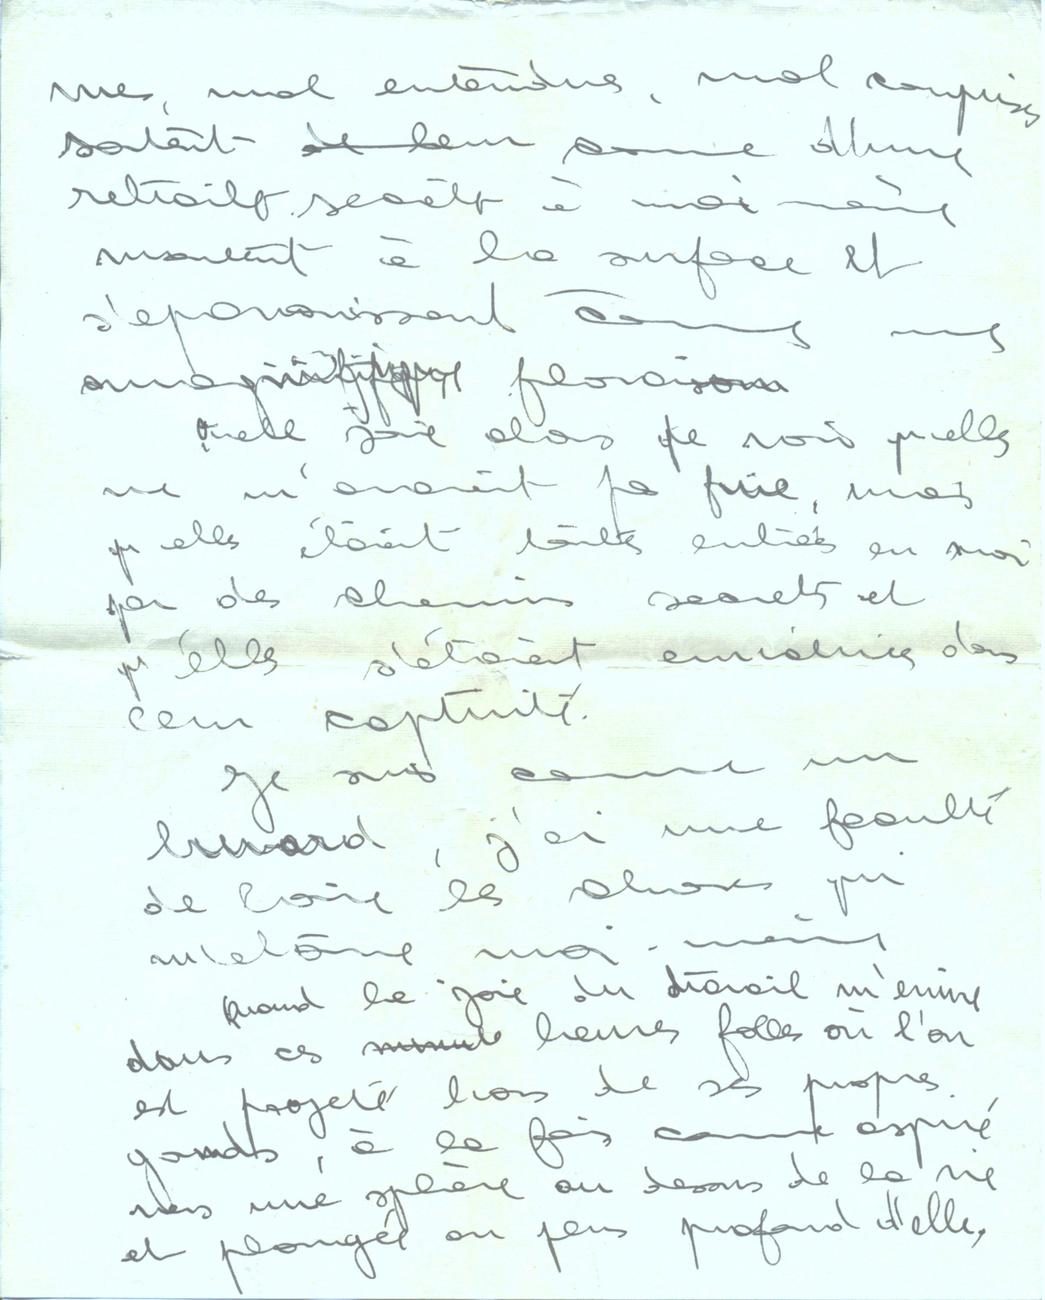 vues, mal entendues, mal comprises
sortent de leur comme d'une
retraite secrète à moi-même
montent à la surface et
s'epanouissent comme une
magnifique floraison
Quelle joie alors de voir qu'elles
ne m'avaient pas fuie, mais
qu'elles étaient toutes entrées en moi
par des chemins secrets et
qu'elles s'étaient enrichies dans
leur captivité.
Je suis comme un
buvard, j'ai une faculté
de boire les choses qui
m'étonne moi-même
Quand la joie du travail m'enivre
dans ces minutes heures folles où l'on
est projeté hors de ses propres
gonds, à la fois comme aspiré
vers une sphère au dessus de la vie
et plongée au plus profond d'elle,